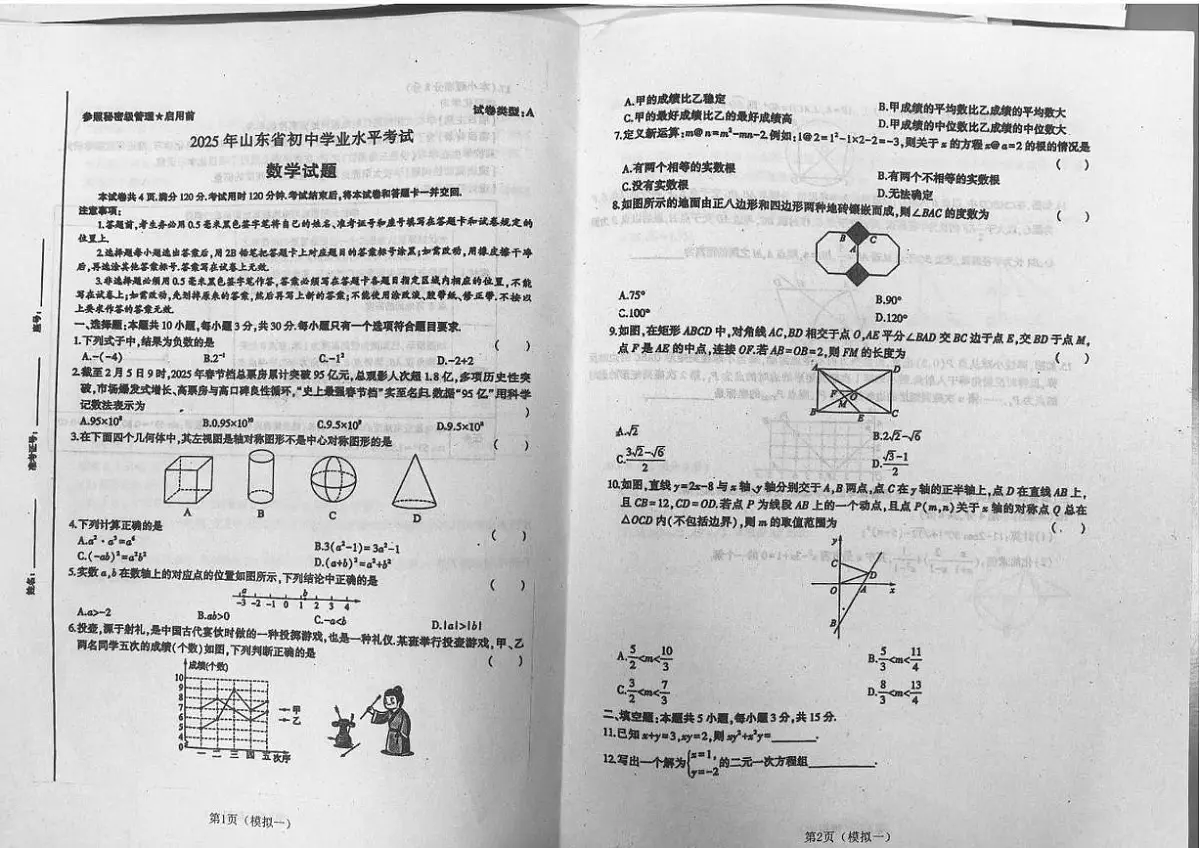 参照秘密级管理★启用前
试卷类型:A
2025年山东省初中学业水平考试
数学试题
本试卷共4页.满分120分.考试用时120分钟.考试结束后,将本试卷和答题卡一并交回.
注意事项:
1.答题前,考生务必用0.5毫米黑色签字笔将自己的姓名、准考证号和座号填写在答题卡和试卷规定的
位置上.
2.选择题每小题选出答案后,用2B铅笔把答题卡上对应题目的答案标号涂黑;如需改动,用橡皮擦干净
后,再选涂其他答案标号.答案写在试卷上无效.
3.非选择题必须用0.5毫米黑色签字笔作答,答案必须写在答题卡各题目指定区域内相应的位置,不能
写在试卷上;如需改动,先划掉原来的答案,然后再写上新的答案;不能使用涂改液、胶带纸、修正带.不按以
上要求作答的答案无效.
一、选择题:本题共10小题,每小题3分,共30分.每小题只有一个选项符合题目要求.
1.下列式子中,结果为负数的是 ( )
A.-(-4) B.2⁻¹ C.-1² D.-2+2
2.截至2月5日9时,2025年春节档总票房累计突破95亿元,总观影人次超1.8亿,多项历史性突
破,市场爆发式增长、高票房与高口碑良性循环,“史上最强春节档”实至名归.数据“95亿”用科学
记数法表示为 ( )
A.95×10⁸ B.0.95×10¹⁰ C.9.5×10⁹ D.9.5×10⁸
3.在下面四个几何体中,其左视图是轴对称图形不是中心对称图形的是 ( )
A B C D
4.下列计算正确的是 ( )
A.a²·a³=a⁶ B.3(a²-1)=3a²-1
C.(-ab)²=a²b² D.(a+b)²=a²+b²
5.实数a,b在数轴上的对应点的位置如图所示,下列结论中正确的是 ( )
a b
-3 -2 -1 0 1 2 3 4
A.a>-2 B.ab>0 C.-a<b D.|a|>|b|
6.投壶,源于射礼,是中国古代宴饮时做的一种投掷游戏,也是一种礼仪.某班举行投壶游戏,甲、乙
两名同学五次的成绩(个数)如图,下列判断正确的是 ( )
成绩(个数)
10
9
8
7
6
5
4
0
一 二 三 四 五 次序
甲
乙
第1页（模拟一）
座号:
准考证号:
姓名:
A.甲的成绩比乙稳定 B.甲成绩的平均数比乙成绩的平均数大
C.甲的最好成绩比乙的最好成绩高 D.甲成绩的中位数比乙成绩的中位数大
7.定义新运算:m@n=m²-mn-2.例如:1@2=1²-1×2-2=-3,则关于x的方程x@a=2的根的情况是
( )
A.有两个相等的实数根 B.有两个不相等的实数根
C.没有实数根 D.无法确定
8.如图所示的地面由正八边形和四边形两种地砖镶嵌而成,则∠BAC的度数为 ( )
B C
A
A.75° B.90°
C.100° D.120°
9.如图,在矩形ABCD中,对角线AC,BD相交于点O,AE平分∠BAD交BC边于点E,交BD于点M,
点F是AE的中点,连接OF.若AB=OB=2,则FM的长度为 ( )
A D
F O
M
B E C
A.√2 B.2√2-√6
C.(3√2-√6)/2 D.(√3-1)/2
10.如图,直线y=2x-8与x轴、y轴分别交于A,B两点,点C在y轴的正半轴上,点D在直线AB上,
且CB=12,CD=OD.若点P为线段AB上的一个动点,且点P(m,n)关于x轴的对称点Q总在
△OCD内(不包括边界),则m的取值范围为 ( )
y
C
D
O A x
B
A.5/2<m<10/3 B.5/3<m<11/4
C.3/2<m<7/3 D.8/3<m<13/4
二、填空题:本题共5小题,每小题3分,共15分.
11.已知x+y=3,xy=2,则xy²+x²y=______.
12.写出一个解为{x=1, y=-2 的二元一次方程组______.
第2页（模拟一）